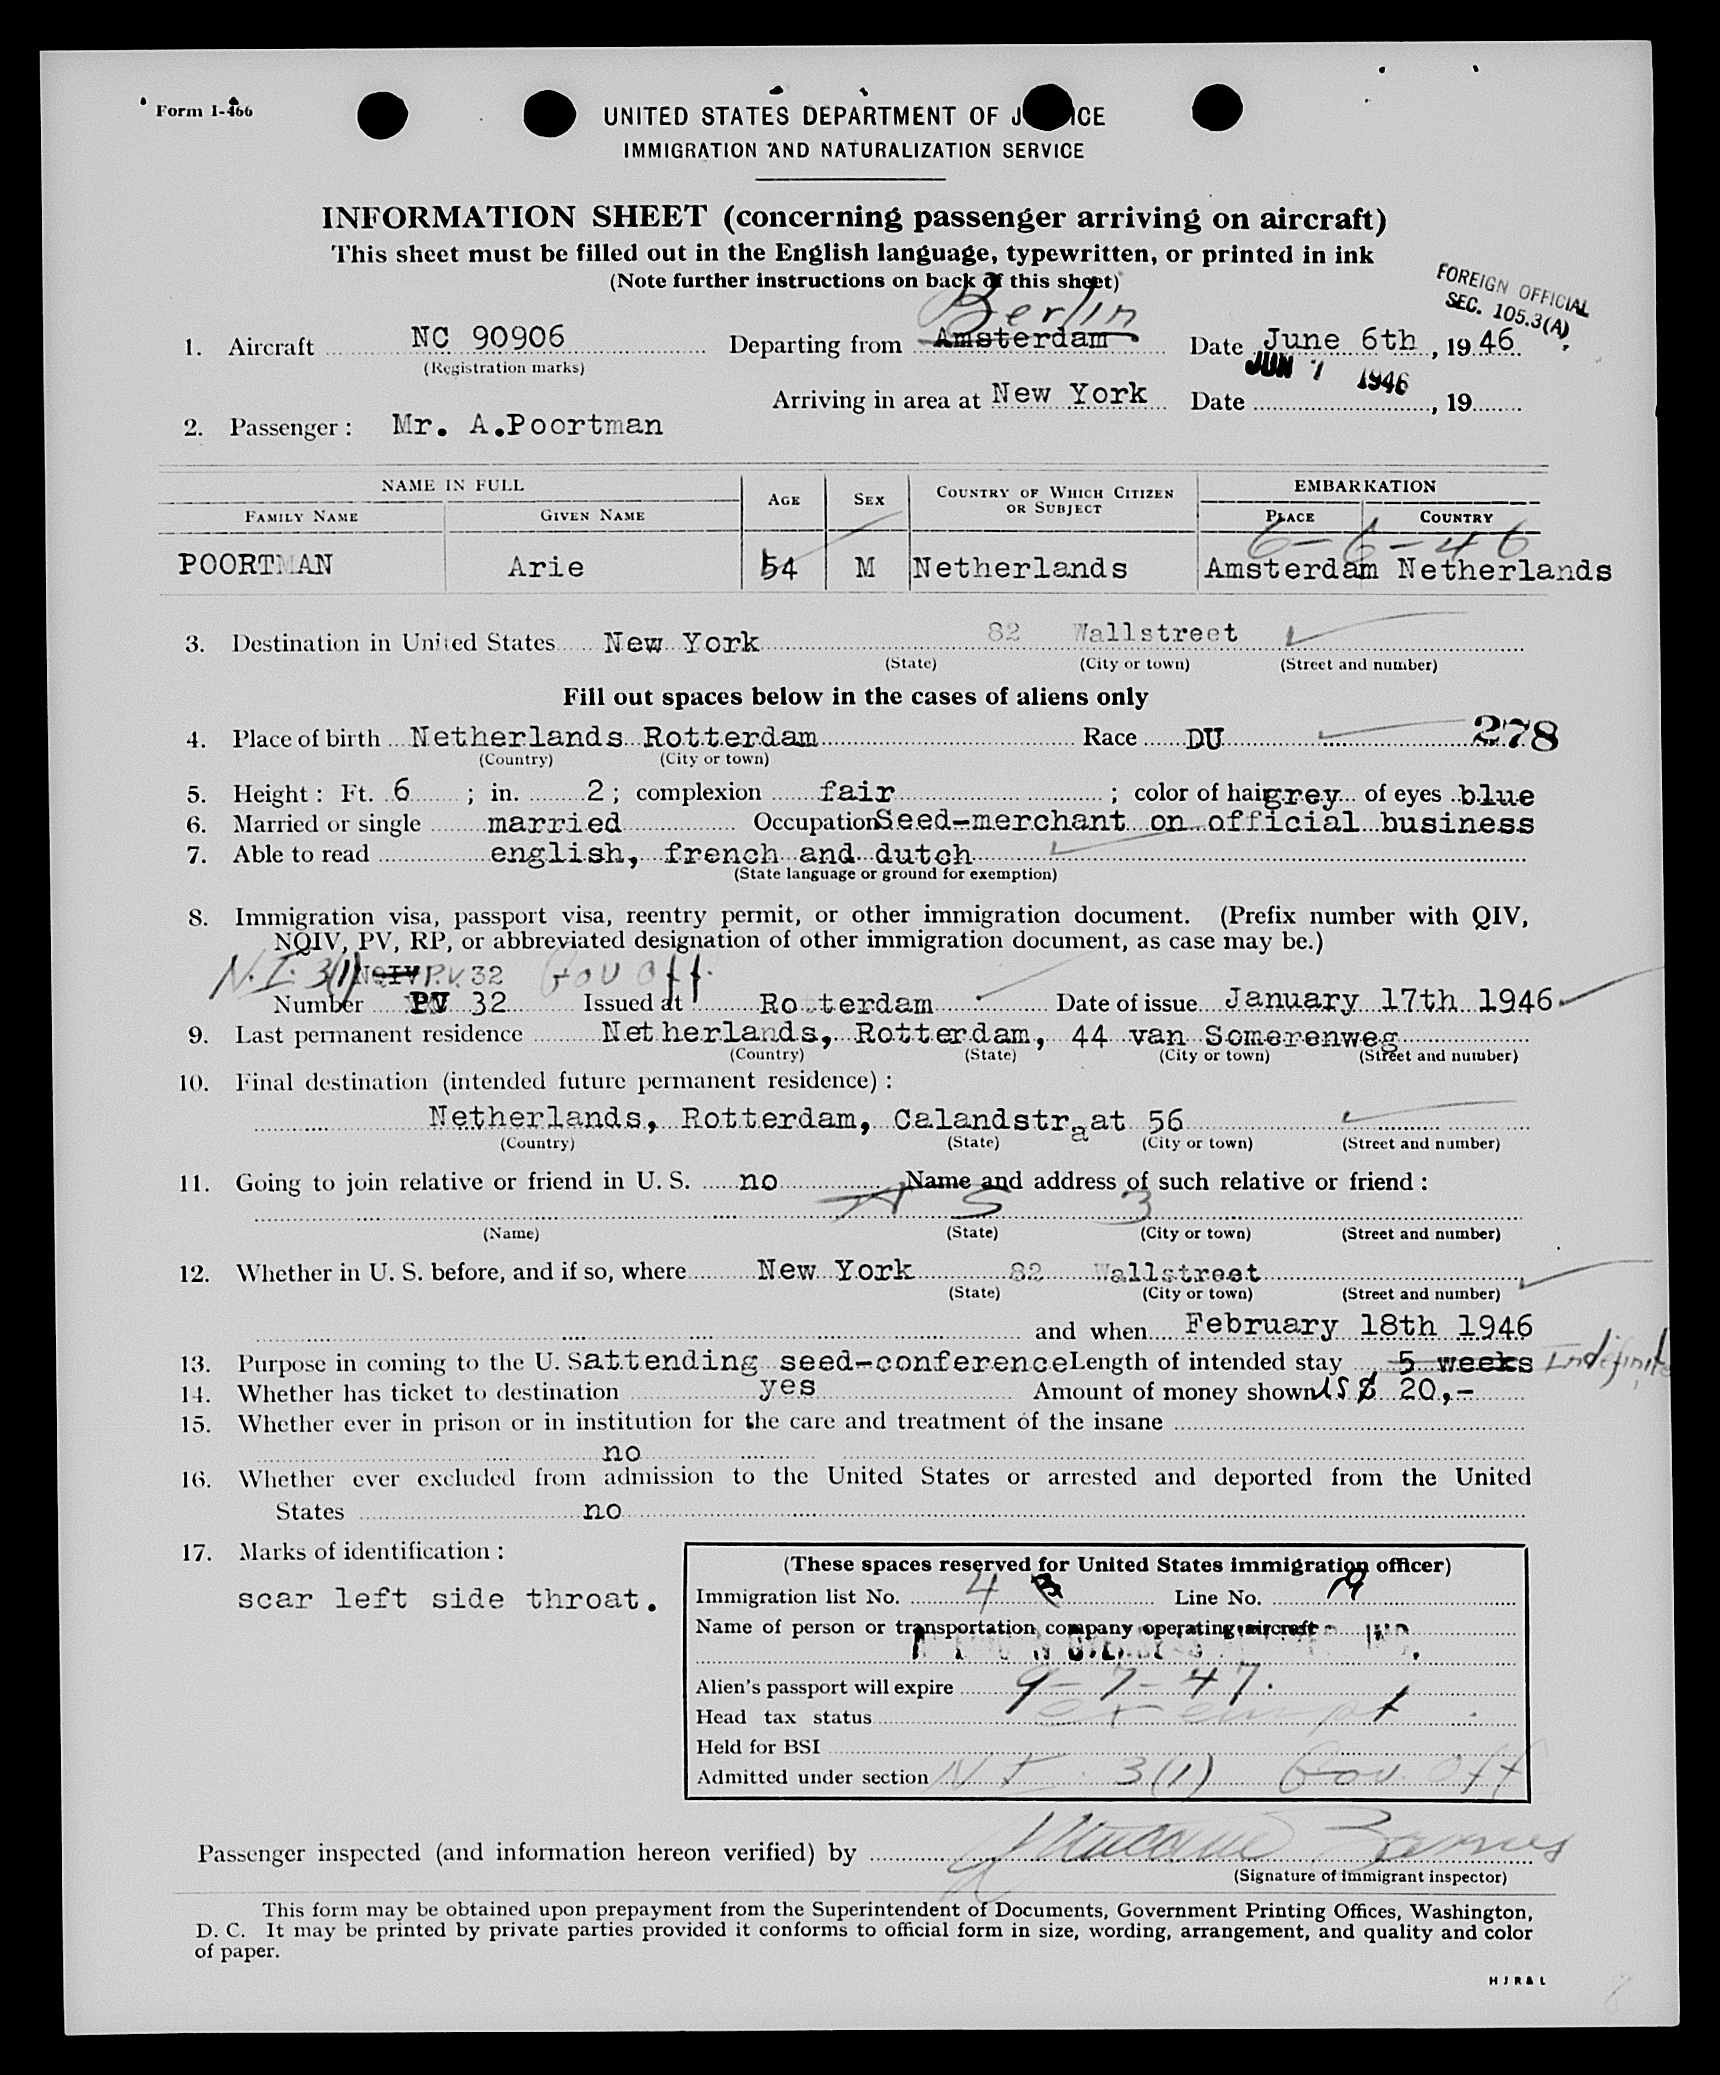 Form I-466
UNITED STATES DEPARTMENT OF J   ICE
IMMIGRATION AND NATURALIZATION SERVICE
INFORMATION SHEET (concerning passenger arriving on aircraft)
This sheet must be filled out in the English language, typewritten, or printed in ink
(Note further instructions on back of this sheet)
FOREIGN OFFICIAL
SEC. 105.3(A)
Berlin
1. Aircraft NC 90906 Departing from Amsterdam Date June 6th, 1946
(Registration marks)
JUN 7 1946
Arriving in area at New York Date , 19
2. Passenger: Mr. A.Poortman
NAME IN FULL AGE SEX COUNTRY OF WHICH CITIZEN OR SUBJECT EMBARKATION
FAMILY NAME GIVEN NAME PLACE COUNTRY
6-6-46
POORTMAN Arie 54 M Netherlands Amsterdam Netherlands
3. Destination in United States New York 82 Wallstreet
(State) (City or town) (Street and number)
Fill out spaces below in the cases of aliens only
4. Place of birth Netherlands Rotterdam Race DU 278
(Country) (City or town)
5. Height: Ft. 6; in. 2; complexion fair; color of hair grey of eyes blue
6. Married or single married Occupation Seed-merchant on official business
7. Able to read english, french and dutch
(State language or ground for exemption)
8. Immigration visa, passport visa, reentry permit, or other immigration document. (Prefix number with QIV,
NQIV, PV, RP, or abbreviated designation of other immigration document, as case may be.)
N.I. 3(1) NQIV P.V. 32 Gov off.
Number PV 32 Issued at Rotterdam Date of issue January 17th 1946
9. Last permanent residence Netherlands, Rotterdam, 44 van Somerenweg
(Country) (State) (City or town) (Street and number)
10. Final destination (intended future permanent residence):
Netherlands, Rotterdam, Calandstraat 56
(Country) (State) (City or town) (Street and number)
11. Going to join relative or friend in U. S. no Name and address of such relative or friend:
A S 3
(Name) (State) (City or town) (Street and number)
12. Whether in U. S. before, and if so, where New York 82 Wallstreet
(State) (City or town) (Street and number)
and when February 18th 1946
13. Purpose in coming to the U. S. attending seed-conference Length of intended stay 5 weeks Indefinite
14. Whether has ticket to destination yes Amount of money shown US $ 20,-
15. Whether ever in prison or in institution for the care and treatment of the insane
no
16. Whether ever excluded from admission to the United States or arrested and deported from the United
States no
17. Marks of identification:
scar left side throat.
(These spaces reserved for United States immigration officer)
Immigration list No. 4 Line No. 19
Name of person or transportation company operating aircraft
Alien's passport will expire 9-7-47.
Head tax status exempt
Held for BSI
Admitted under section N I 3(1) Gov. Off
Passenger inspected (and information hereon verified) by
(Signature of immigrant inspector)
This form may be obtained upon prepayment from the Superintendent of Documents, Government Printing Offices, Washington,
D. C. It may be printed by private parties provided it conforms to official form in size, wording, arrangement, and quality and color
of paper.
H J R & L